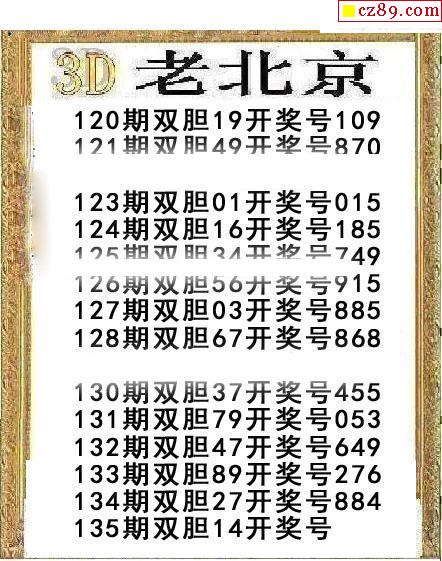 cz89.com
3D 老北京
120期双胆19开奖号109
121期双胆49开奖号870
123期双胆01开奖号015
124期双胆16开奖号185
125期双胆34开奖号749
126期双胆56开奖号915
127期双胆03开奖号885
128期双胆67开奖号868
130期双胆37开奖号455
131期双胆79开奖号053
132期双胆47开奖号649
133期双胆89开奖号276
134期双胆27开奖号884
135期双胆14开奖号